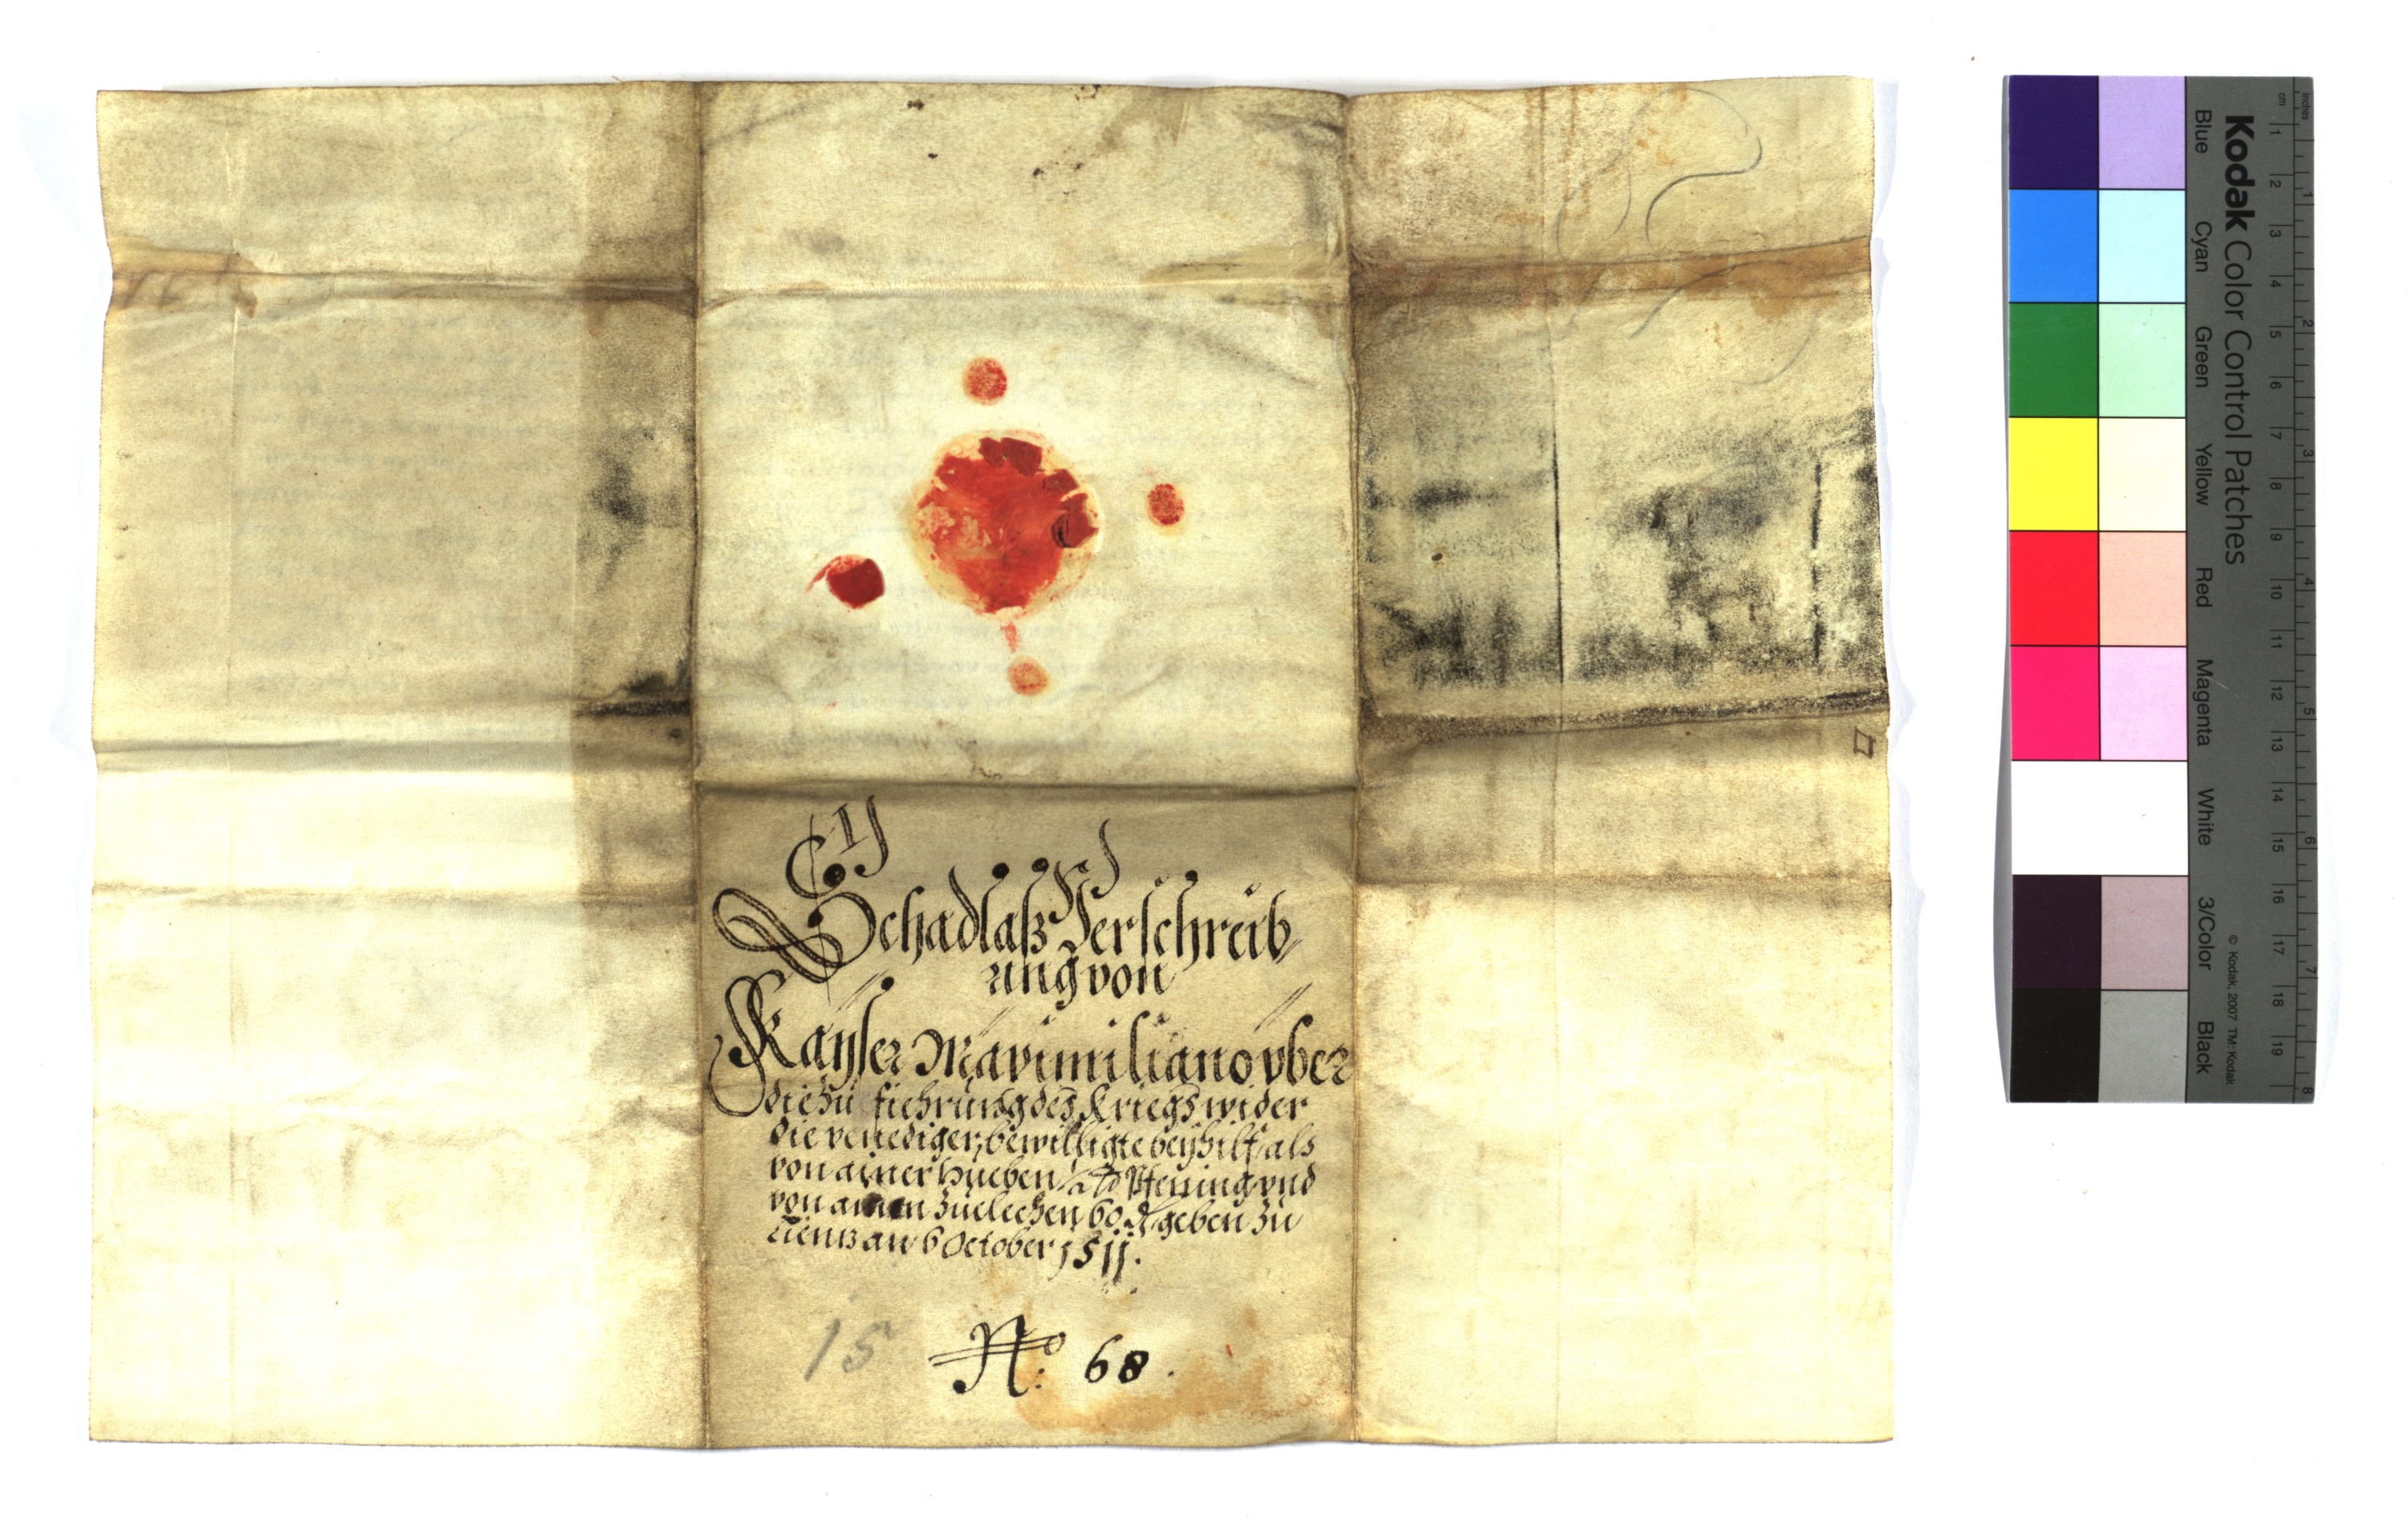 Schadlaß Verschreib
ung von
Kayser Maximiliano vber
die zu fiehrung des Kriegs wider
die venediger, bewilligte beyhilf, als
von ainer Hueben Pfening vnd
von ainen Zuelechen 60 geben zu
Lienz an 6 October 1511.
15 No: 68.
Kodak Color Control Patches
Blue Cyan Green Yellow Red Magenta White 3/Color Black
© Kodak, 2007 TM: Kodak
cm 1 2 3 4 5 6 7 8 9 10 11 12 13 14 15 16 17 18 19
inches 1 2 3 4 5 6 7 8